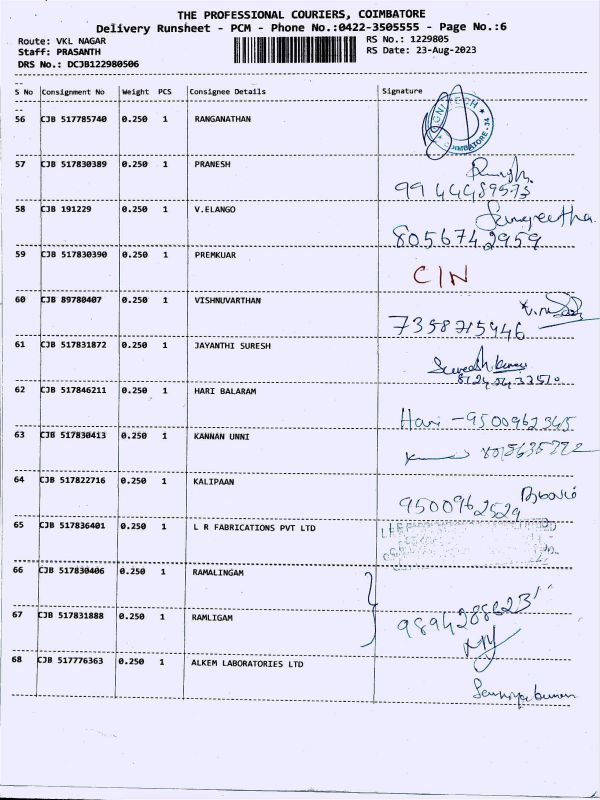 THE PROFESSIONAL COURIERS, COIMBATORE
Delivery Runsheet - PCM - Phone No.:0422-3505555 - Page No.:6
Route: VKL NAGAR RS No.: 1229805
Staff: PRASANTH RS Date: 23-Aug-2023
DRS No.: DCJB122980506
S No Consignment No Weight PCS Consignee Details Signature
56 CJB 517785740 0.250 1 RANGANATHAN
57 CJB 517830389 0.250 1 PRANESH
9944489573
58 CJB 191229 0.250 1 V.ELANGO Sangeetha
8056742959
59 CJB 517830390 0.250 1 PREMKUAR
CIN
60 CJB 89780407 0.250 1 VISHNUVARTHAN
7358715946
61 CJB 517831872 0.250 1 JAYANTHI SURESH
Suresh Kumar
62 CJB 517846211 0.250 1 HARI BALARAM
Hari - 9500962345
63 CJB 517830413 0.250 1 KANNAN UNNI
64 CJB 517822716 0.250 1 KALIPAAN
9500962529
65 CJB 517836401 0.250 1 L R FABRICATIONS PVT LTD
66 CJB 517830406 0.250 1 RAMALINGAM
67 CJB 517831888 0.250 1 RAMLIGAM
9894288623
68 CJB 517776363 0.250 1 ALKEM LABORATORIES LTD